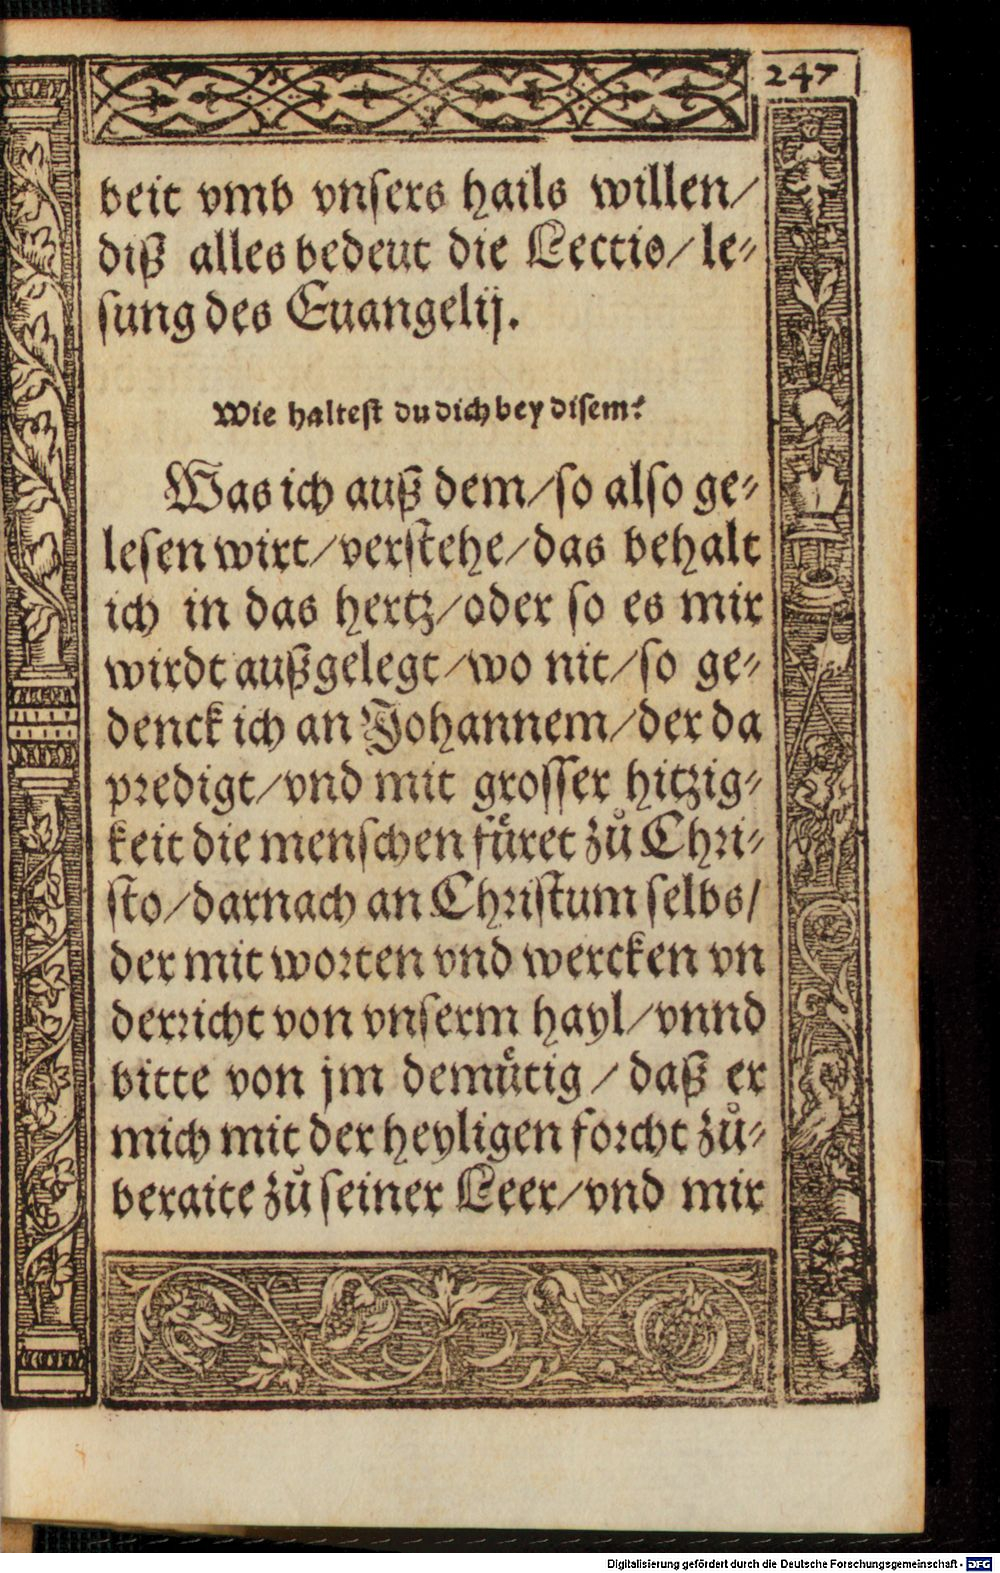 247
beit vmb vnsers hails willen/
diß alles bedeut die Lectio/ le-
sung des Euangelij.
Wie haltest du dich bey disem?
Was ich auß dem/ so also ge-
lesen wirt/ verstehe/ das behalt
ich in das hertz/ oder so es mir
wirdt außgelegt/ wo nit/ so ge-
denck ich an Johannem/ der da
predigt/ vnd mit grosser hitzig-
keit die menschen füret zů Chri-
sto/ darnach an Christum selbs/
der mit worten vnd wercken vn
derricht von vnserm hayl/ vnnd
bitte von jm demütig/ daß er
mich mit der heyligen forcht zů-
beraite zů seiner Leer/ vnd mir
Digitalisierung gefördert durch die Deutsche Forschungsgemeinschaft - DFG